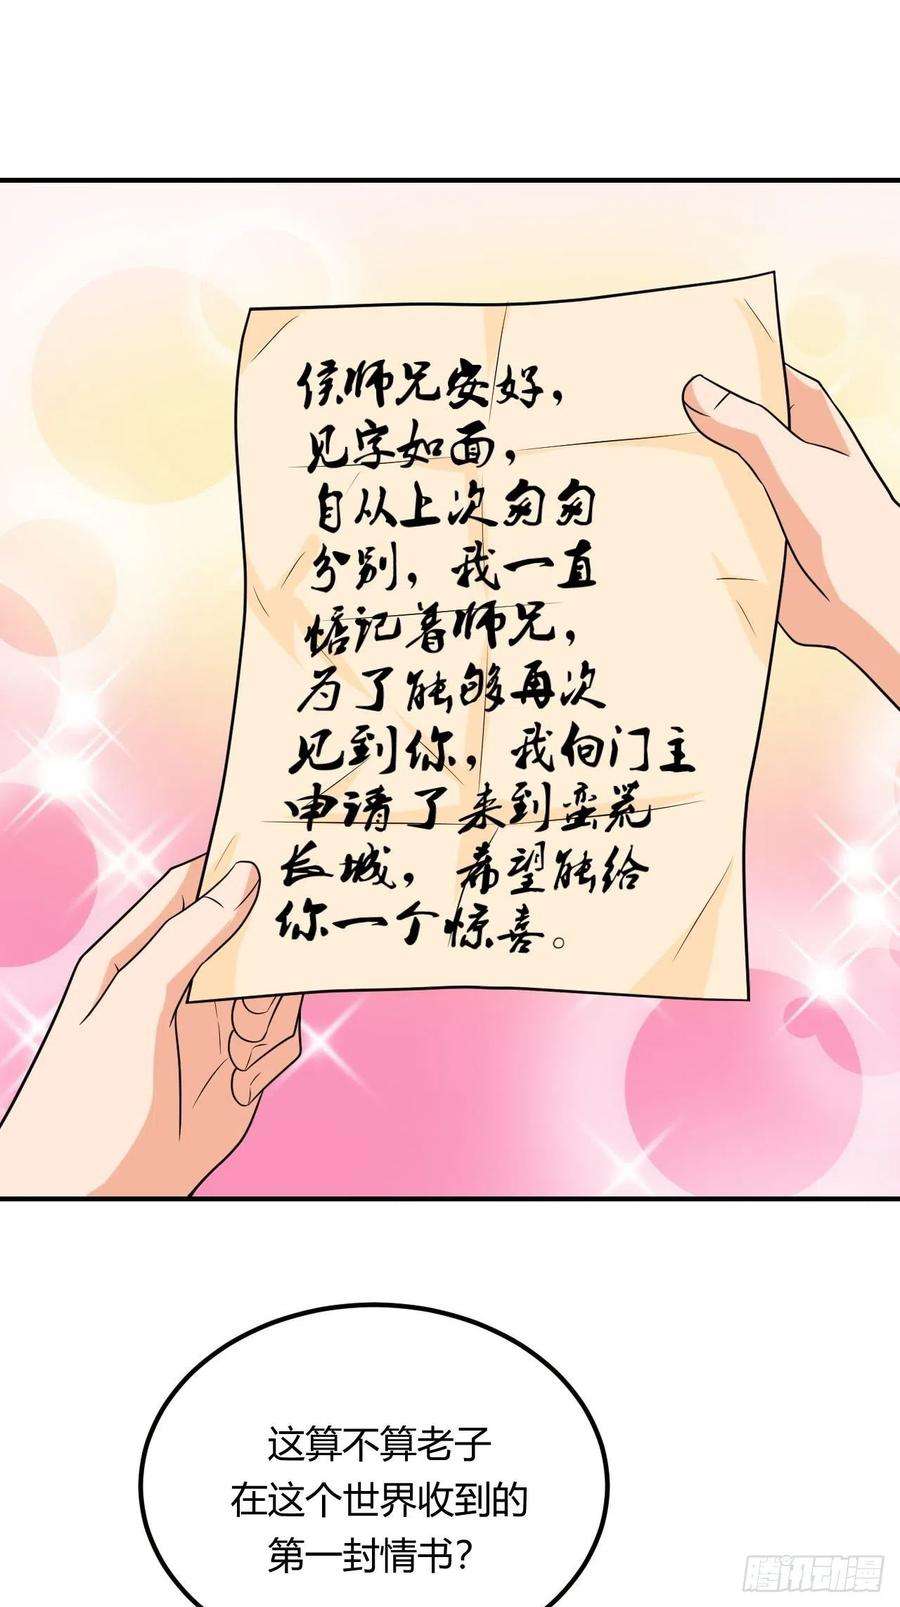 侯师兄安好，
见字如面，
自从上次匆匆
分别，我一直
惦记着师兄，
为了能够再次
见到你，我向门主
申请了来到蛮荒
长城，希望能给
你一个惊喜。
这算不算老子
在这个世界收到的
第一封情书？
腾讯动漫